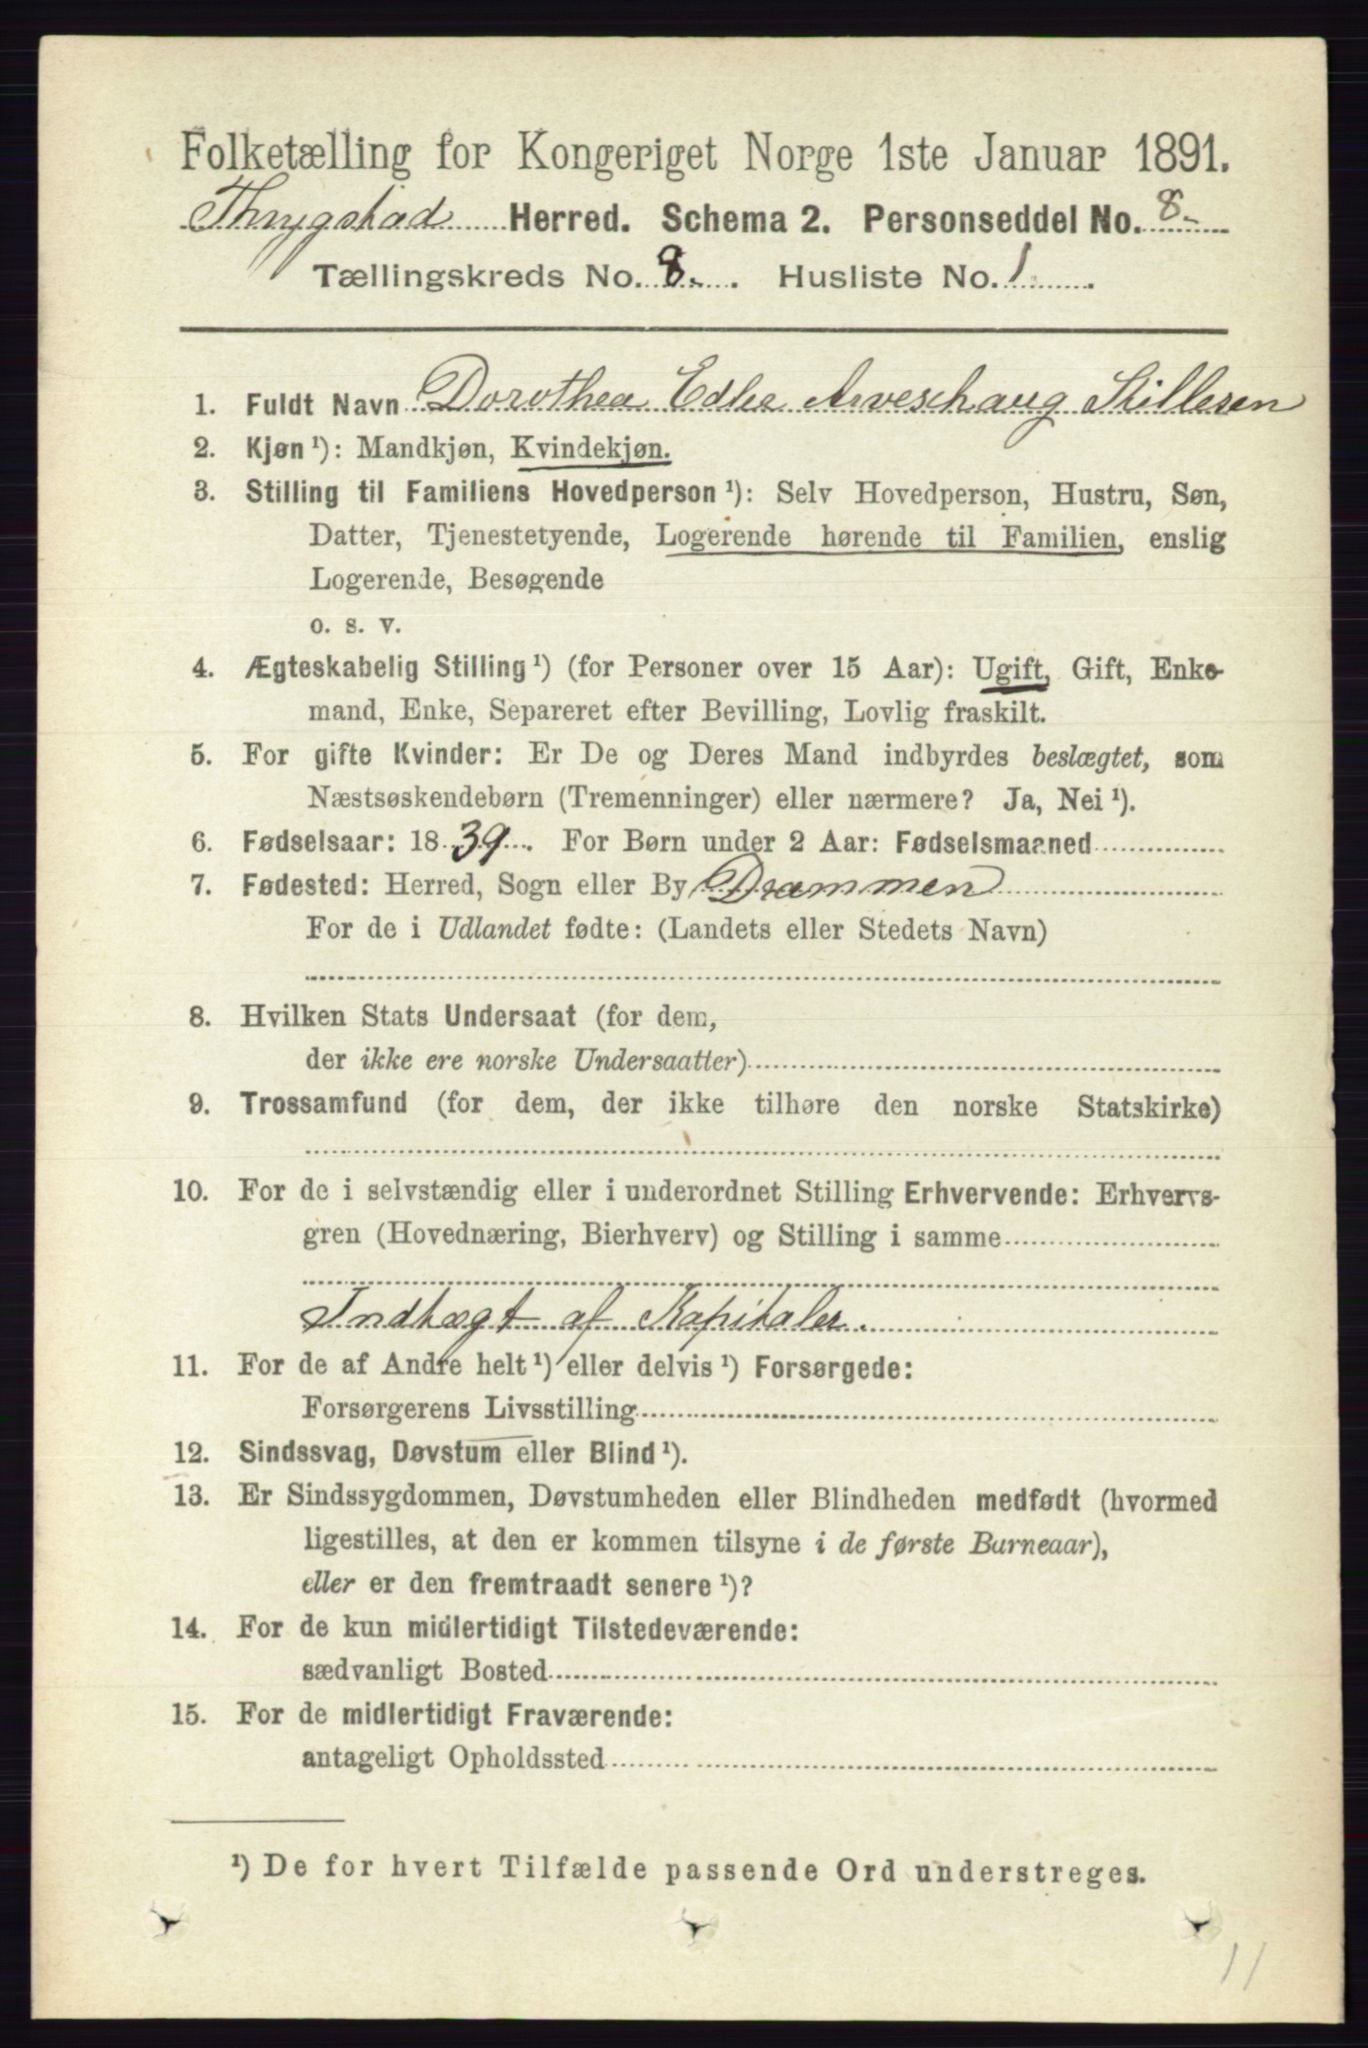 Folketælling for Kongeriget Norge 1ste Januar 1891.
Thrygstad Herred. Schema 2. Personseddel No. 8.
Tællingskreds No. 8. Husliste No. 1
1. Fuldt Navn Dorothea Edle Arveschoug Stillesen
2. Kjøn¹): Mandkjøn, Kvindekjøn.
3. Stilling til Familiens Hovedperson¹): Selv Hovedperson, Hustru, Søn,
Datter, Tjenestetyende, Logerende hørende til Familien, enslig
Logerende, Besøgende
o. s. v.
4. Ægteskabelig Stilling¹) (for Personer over 15 Aar): Ugift, Gift, Enke-
mand, Enke, Separeret efter Bevilling, Lovlig fraskilt.
5. For gifte Kvinder: Er De og Deres Mand indbyrdes beslægtet, som
Næstsøskendebørn (Tremenninger) eller nærmere? Ja, Nei¹).
6. Fødselsaar: 1839. For Børn under 2 Aar: Fødselsmaaned
7. Fødested: Herred, Sogn eller By Drammen
For de i Udlandet fødte: (Landets eller Stedets Navn)
8. Hvilken Stats Undersaat (for dem,
der ikke ere norske Undersaatter)
9. Trossamfund (for dem, der ikke tilhøre den norske Statskirke)
10. For de i selvstændig eller i underordnet Stilling Erhvervende: Erhvervs-
gren (Hovednæring, Bierhverv) og Stilling i samme
Indtægt af Kapitaler.
11. For de af Andre helt¹) eller delvis¹) Forsørgede:
Forsørgerens Livsstilling
12. Sindssvag, Døvstum eller Blind¹).
13. Er Sindssygdommen, Døvstumheden eller Blindheden medfødt (hvormed
ligestilles, at den er kommen tilsyne i de første Barneaar),
eller er den fremtraadt senere¹)?
14. For de kun midlertidigt Tilstedeværende:
sædvanligt Bosted
15. For de midlertidigt Fraværende:
antageligt Opholdssted
¹) De for hvert Tilfælde passende Ord understreges.
11